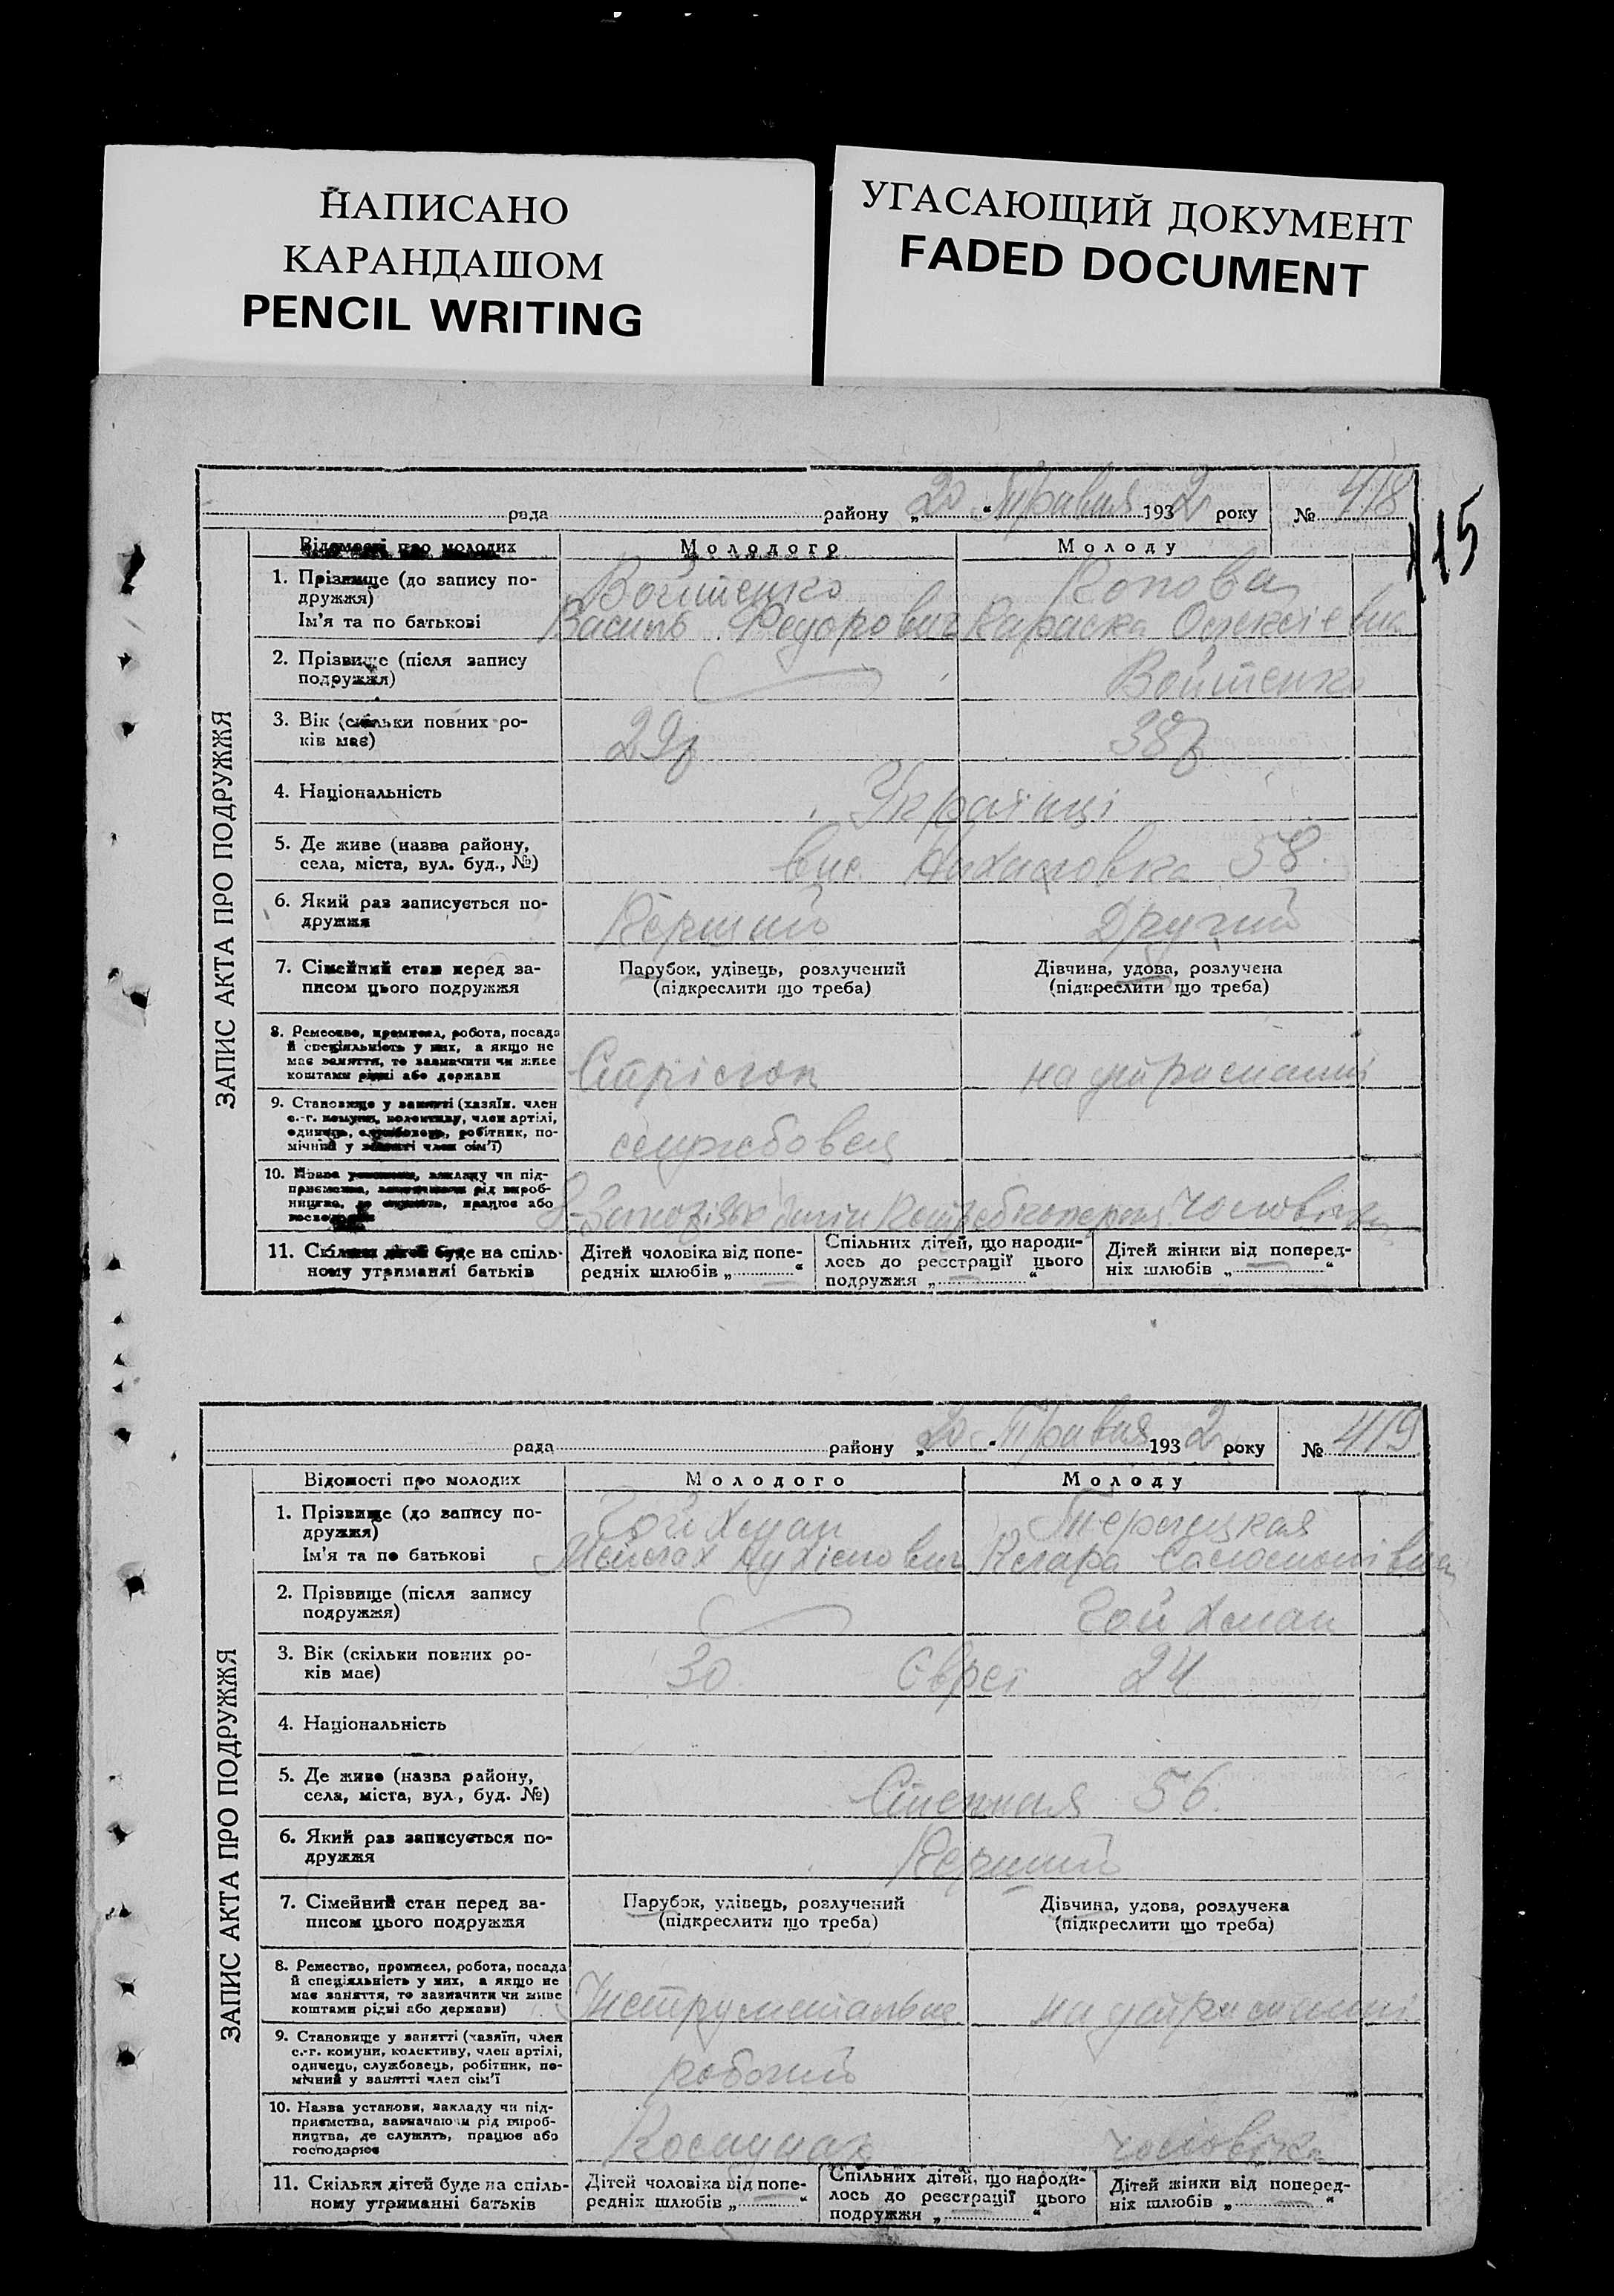 НАПИСАНО
КАРАНДАШОМ
PENCIL WRITING
УГАСАЮЩИЙ ДОКУМЕНТ
FADED DOCUMENT
115
рада района „20“ Травня 1932 року № 418
ЗАПИС АКТА ПРО ПОДРУЖЖЯ
Відомості про молодих Молодого Молоду
1. Прізвище (до запису по-
дружжя)
Ім'я та по батькові
Войтенко
Василь Федорович
Попова
Параска Олексіевна
2. Прізвище (після запису
подружжя)
Войтенко
3. Вік (скільки повних ро-
ків має)
29р 38р
4. Національність
Українці
5. Де живе (назва району,
села, міста, вул. буд., №)
58
6. Який раз записується по-
дружжя
Перший Другий
7. Сімейний стан перед за-
писом цього подружжя
Парубок, удівець, розлучений
(підкреслити що треба)
Дівчина, удова, розлучена
(підкреслити що треба)
8. Ремество, промисел, робота, посада
й спеціяльність у них, а якщо не
має заняття, то зазначити чи живе
коштами рідні або держави
Стрілок на утриманні
9. Становище у занятті (хазяїн. член
с.-г. комуни, колективу, член артілі,
одинець, службовець, робітник, по-
мічний у занятті член сім'ї)
службовец
10. Назва установи, закладу чи під-
приємства, зазначаючи рід вироб-
ництва, де служить, працює або
господарює
чоловіка
11. Скільки дітей буде на спіль-
ному утриманні батьків
Дітей чоловіка від попе-
редніх шлюбів „ — “
Спільних дітей, що народи-
лось до реєстрації цього
подружжя „ — “
Дітей жінки від поперед-
ніх шлюбів „ — “
рада району „20“ Травня 1932 року № 419
ЗАПИС АКТА ПРО ПОДРУЖЖЯ
Відомості про молодих Молодого Молоду
1. Прізвище (до запису по-
дружжя)
Ім'я та по батькові
Гойхман
Клара Соломонівна
2. Прізвище (після запису
подружжя)
Гойхман
3. Вік (скільки повних ро-
ків має)
30 Євреї 24
4. Національність
5. Де живе (назва району,
села, міста, вул., буд. №)
Степная 56
6. Який раз записується по-
дружжя
Перший
7. Сімейний стан перед за-
писом цього подружжя
Парубок, удівець, розлучений
(підкреслити що треба)
Дівчина, удова, розлучена
(підкреслити що треба)
8. Ремество, промисел, робота, посада
й спеціяльність у них, а якщо не
має заняття, то зазначити чи живе
коштами рідні або держави)
на утриманні
9. Становище у занятті (хазяїн, член
с.-г. комуни, колективу, член артілі,
одинець, службовець, робітник, по-
мічний у занятті член сім'ї
робочий
10. Назва установи, закладу чи під-
приємства, зазначаючи рід вироб-
ництва, де служить, працює або
господарює
чоловіка
11. Скільки дітей буде на спіль-
ному утриманні батьків
Дітей чоловіка від попе-
редніх шлюбів „ — “
Спільних дітей, що народи-
лось до реєстрації цього
подружжя „ — “
Дітей жінки від поперед-
ніх шлюбів „ — “